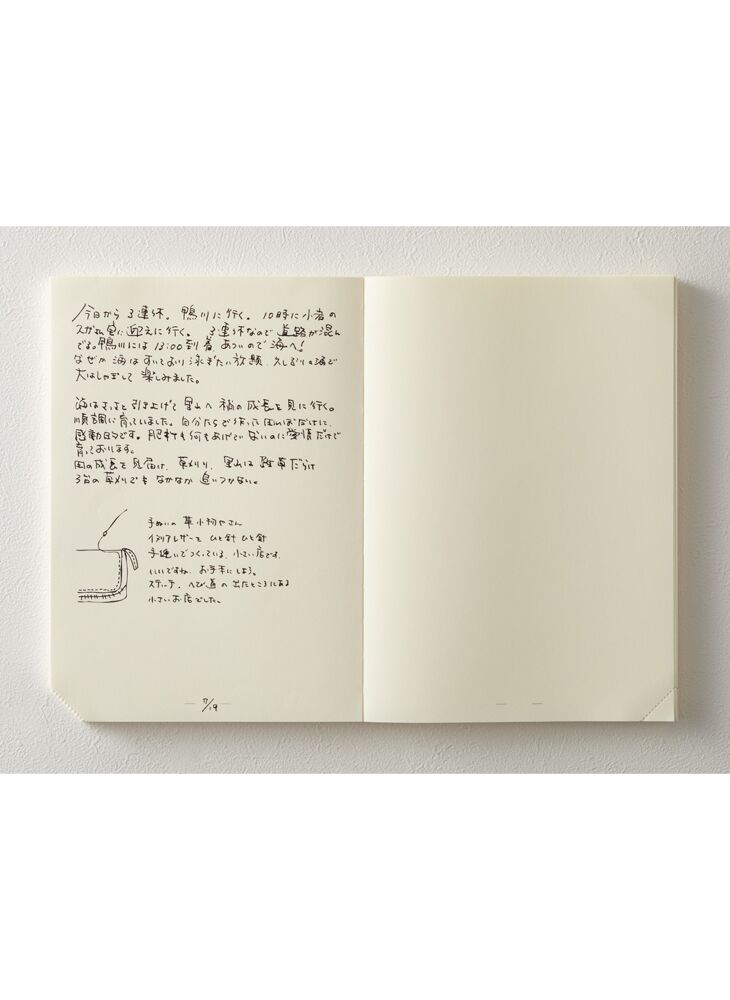 今日から3連休。鴨川に行く。10時に小岩の
スガさん宅に迎えに行く。3連休なので道路が混ん
でる。鴨川には13:00到着、あついので海へ!
なぜか海はすいており泳ぎたい放題、久しぶりの海で
大はしゃぎして楽しみました。
海はさっさと引き上げて里山へ稲の成長を見に行く。
順調に育っていました。自分たちで作った田んぼだけに、
感動的です。肥料も何もあげていないのに愛情だけで
育っております。
田の成長を見届け、草刈り、里山は雑草だらけ
3台の草刈でもなかなか追いつかない。
手ぬいの革小物やさん
イタリアレザーをひと針ひと針
手縫いでつくっている、小さい店です。
いいですね、お手本にしよう。
ステッチ、へび道の出たところにある
小さいお店でした。
7/19